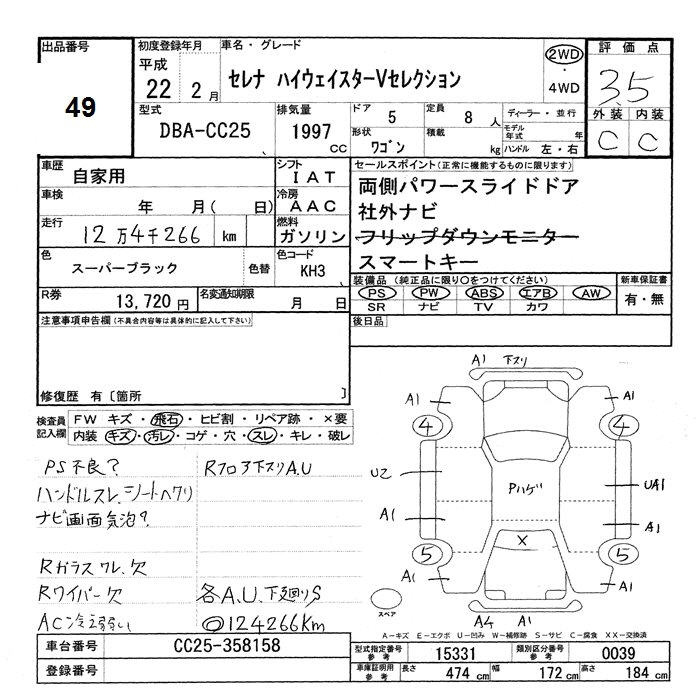 出品番号
49
初度登録年月
平成
22 2月
車名・グレード
セレナ ハイウェイスターVセレクション
2WD
・
4WD
評価点
3.5
外装 内装
C C
型式
DBA-CC25
排気量
1997 CC
ドア 5
定員 8 人
形状 ワゴン
積載 kg
ディーラー・並行
モデル年式 年
ハンドル 左・右
車歴
自家用
シフト
IAT
車検
年 月( 日)
冷房
AAC
走行
12万4千266 km
燃料
ガソリン
色
スーパーブラック
色替
色コード
KH3
R券
13,720円
名変通知期限
月 日
セールスポイント(正常に機能するものに限ります)
両側パワースライドドア
社外ナビ
フリップダウンモニター
スマートキー
装備品(純正品に限り○をつけてください)
PS PW ABS エアB AW
SR ナビ TV カワ
新車保証書
有・無
後日品
注意事項申告欄(不具合内容等は具体的に記入して下さい)
修復歴 有〔箇所 〕
検査員記入欄
FW キズ・飛石・ヒビ割・リペア跡・×要
内装 キズ・汚レ・コゲ・穴・スレ・キレ・破レ
PS不良?
ハンドルスレ、シートヘタリ
ナビ画面気泡?
Rガラスワレ、欠
Rワイパー欠
AC冷え弱い
Rフロア下スリA.U
各A.U.下廻りS
◎124266Km
A1 下スリ
A1 A1
4 4
U2 Pハゲ UA1
A1 A1
×
5 5
A1 A1
スペア
A4 A1
A−キズ E−エクボ U−凹み W−補修跡 S−サビ C−腐食 XX−交換済
車台番号
CC25-358158
登録番号
型式指定番号 参考
15331
類別区分番号 参考
0039
車庫証明用 参考
長さ 474 cm
幅 172 cm
高さ 184 cm